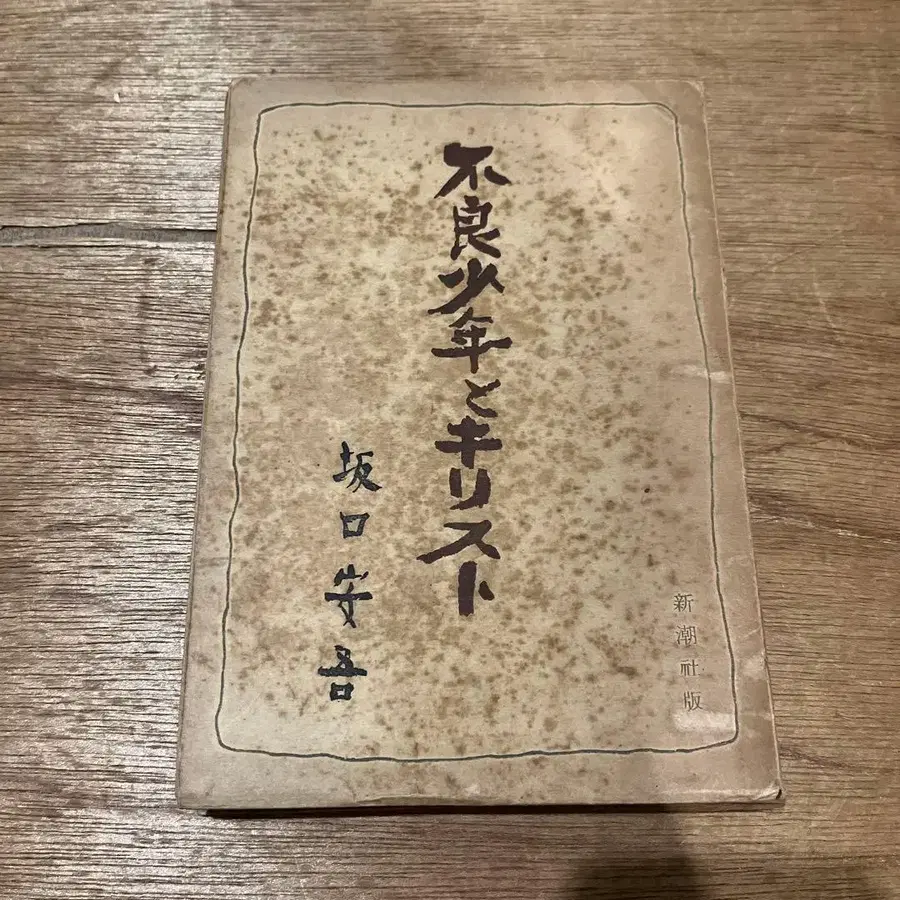 不良少年とキリスト
坂口安吾
新潮社版